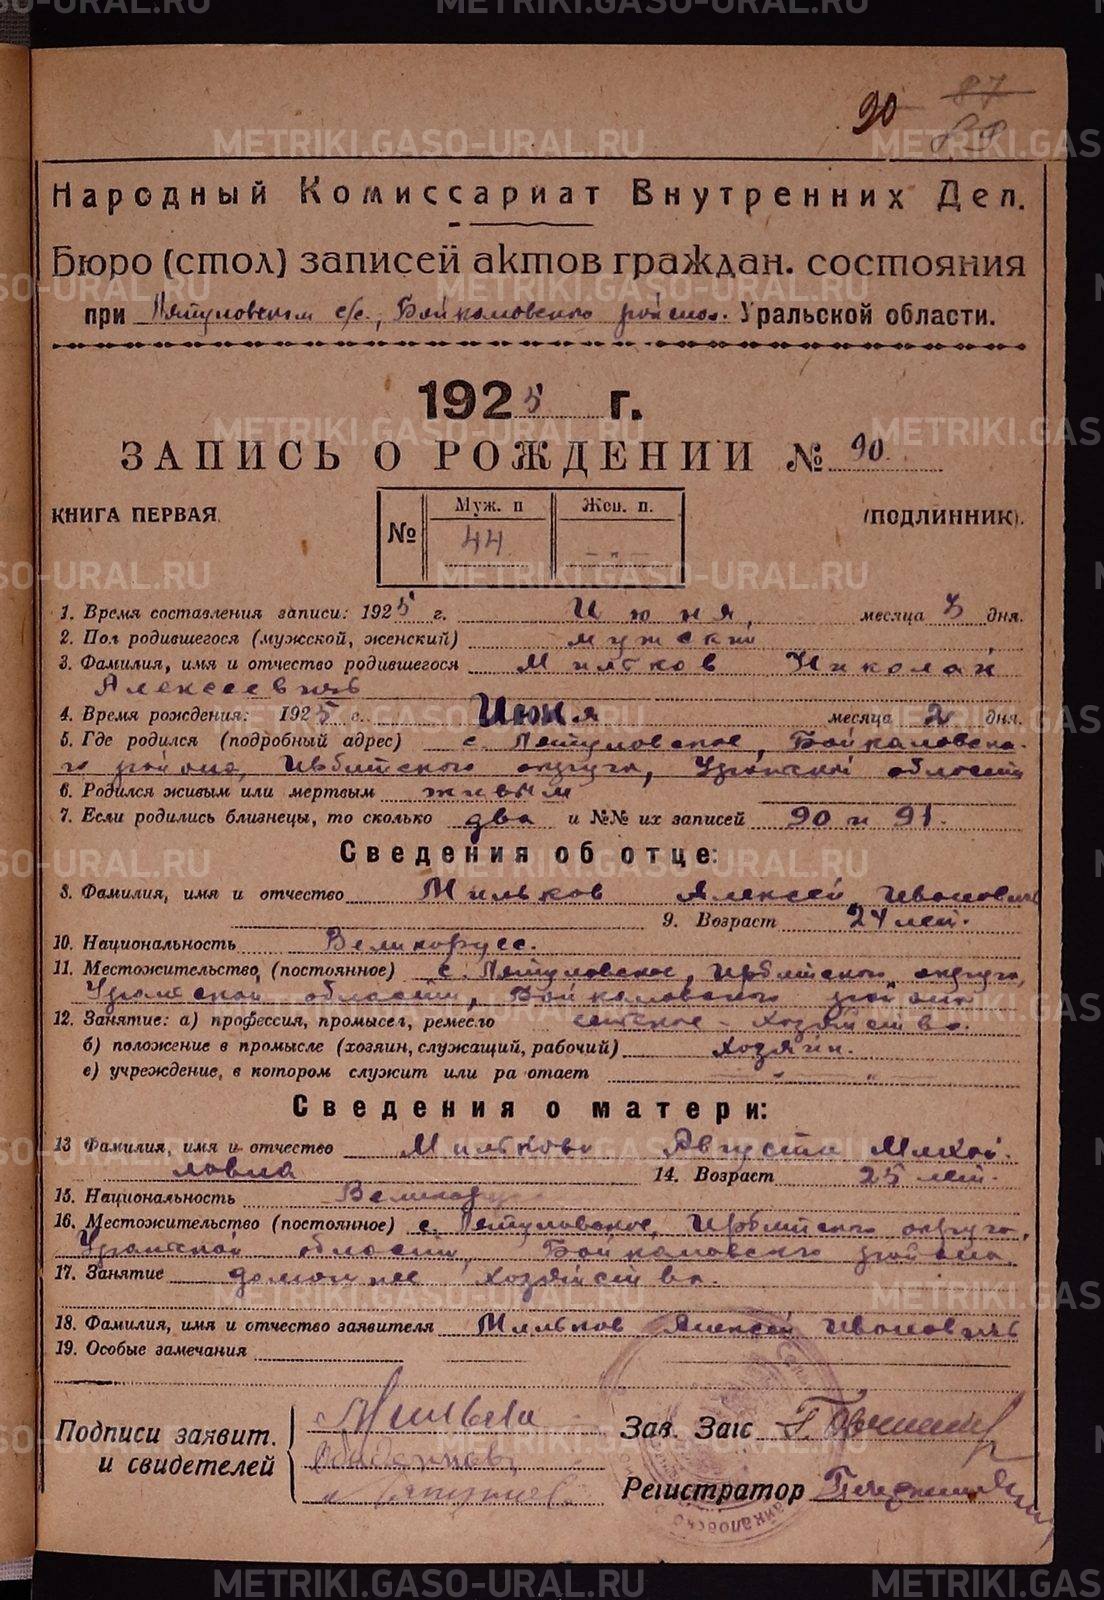 90 87
89
Народный Комиссариат Внутренних Дел.
Бюро (стол) записей актов граждан. состояния
при Ляпуновском с/с., Байкаловского райспол. Уральской области.
1925 г.
ЗАПИСЬ О РОЖДЕНИИ № 90.
КНИГА ПЕРВАЯ. (ПОДЛИННИК).
№ Муж. п Жен. п.
44 - " -
1. Время составления записи: 1925 г. Июня, месяца 3 дня.
2. Пол родившегося (мужской, женский) мужской
3. Фамилия, имя и отчество родившегося Мильков Николай
Алексеевичь
4. Время рождения: 1925 г. Июня месяца 2 дня.
5. Где родился (подробный адрес) с. Ляпуновское, Байкаловско-
го района, Ирбитского округа, Уральской области
6. Родился живым или мертвым живым
7. Если родились близнецы, то сколько два и №№ их записей 90 и 91.
Сведения об отце:
8. Фамилия, имя и отчество Мильков Алексей Иванович
9. Возраст 24 лет.
10. Национальность Великорусс.
11. Местожительство, (постоянное) с. Ляпуновское, Ирбитского округа,
Уральской области, Байкаловского района
12. Занятие: а) профессия, промысел, ремесло сельское-хозяйство.
б) положение в промысле (хозяин, служащий, рабочий) Хозяин.
в) учреждение, в котором служит или ра отает — " — " —
Сведения о матери:
13 Фамилия, имя и отчество Милькова Августа Михай-
ловна 14. Возраст 25 лет.
15. Национальность Великорус
16. Местожительство (постоянное) с. Ляпуновское, Ирбитского округа,
Уральской области, Байкаловского района.
17. Занятие домашнее хозяйство.
18. Фамилия, имя и отчество заявителя Мильков Алексей Ивановичь
19. Особые замечания
Подписи заявит.
и свидетелей
Зав. Загс
Регистратор
METRIKI.GASO-URAL.RU